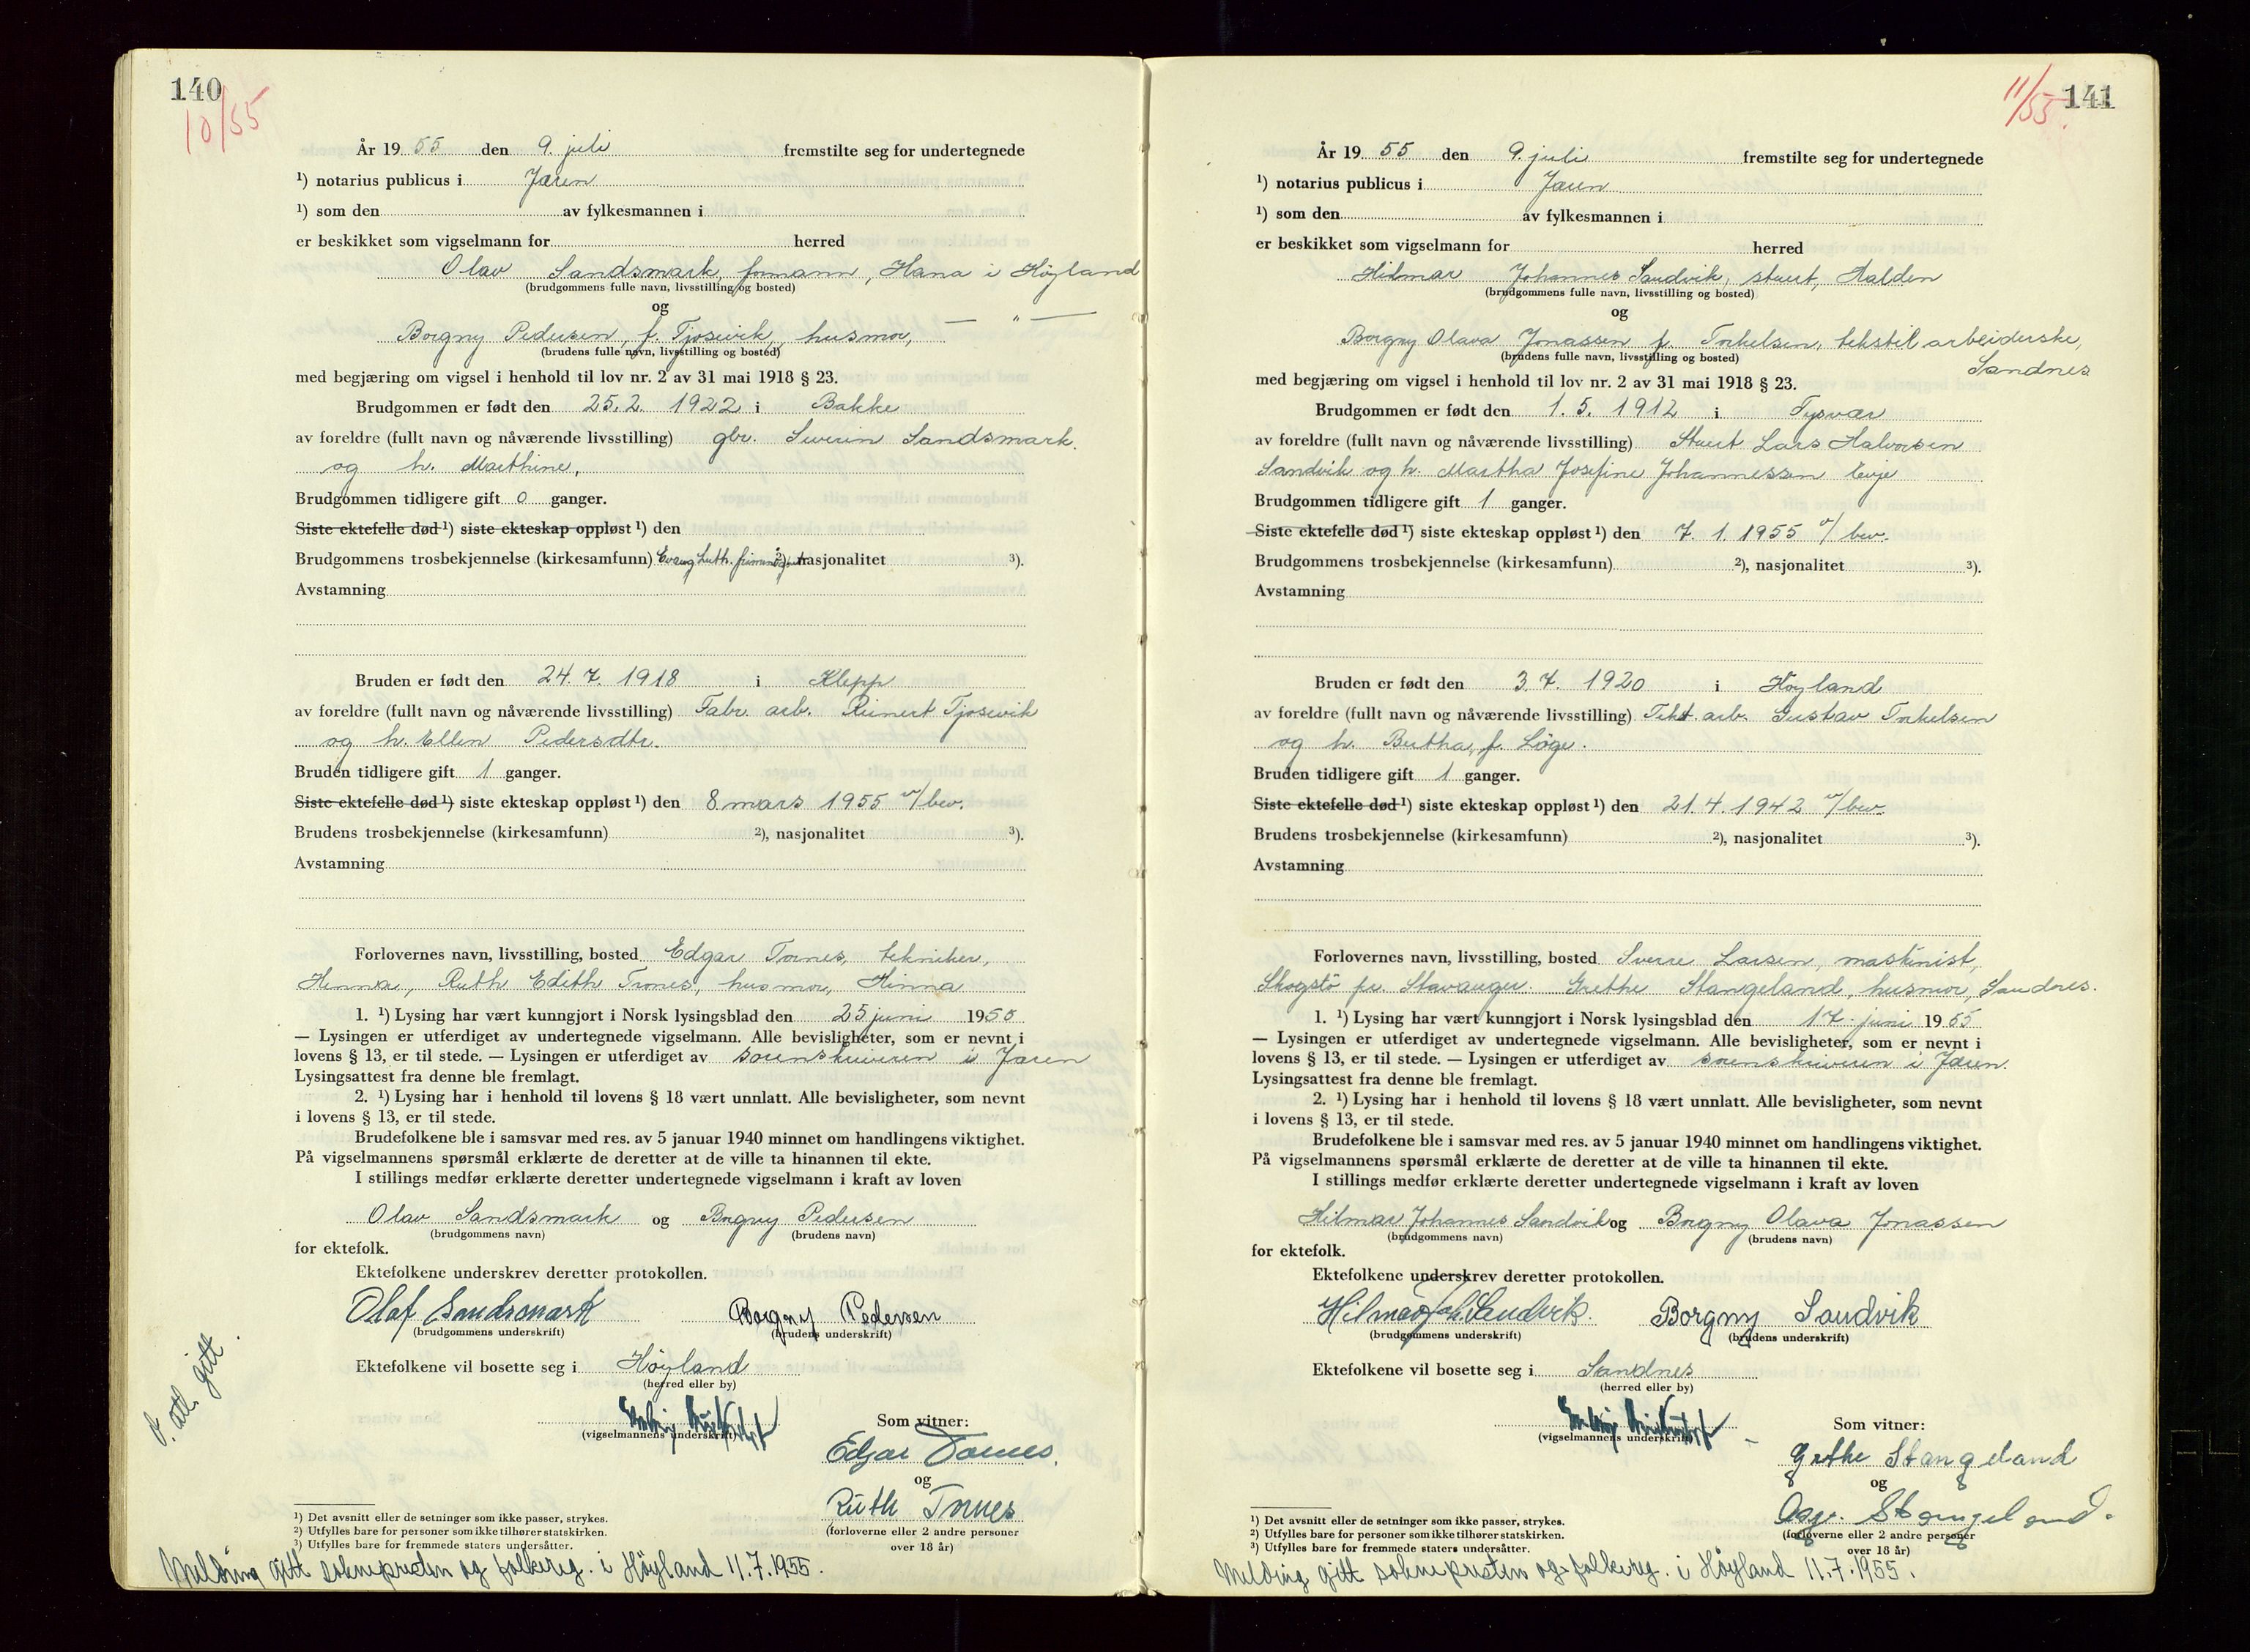 140
10/55
År 19 55 den 9. juli fremstilte seg for undertegnede
¹) notarius publicus i Jæren
¹) som den av fylkesmannen i
er beskikket som vigselmann for herred
Olav Sandsmark, formann, Hana i Høyland
(brudgommens fulle navn, livsstilling og bosted)
og
Borgny Pedersen, f. Tjosevik, husmor, — " —
(brudens fulle navn, livsstilling og bosted)
med begjæring om vigsel i henhold til lov nr. 2 av 31 mai 1918 § 23.
Brudgommen er født den 25.2. 1922 i Bakke
av foreldre (fullt navn og nåværende livsstilling) gbr. Severin Sandsmark
og h. Marthine.
Brudgommen tidligere gift 0 ganger.
Siste ektefelle død ¹) siste ekteskap oppløst ¹) den
Brudgommens trosbekjennelse (kirkesamfunn) Evang luth. frimenighet ²), nasjonalitet ³).
Avstamning
Bruden er født den 24. 7. 1918 i Klepp
av foreldre (fullt navn og nåværende livsstilling) Fabr. arb. Reinert Tjosevik
og h. Ellen Pedersdtr.
Bruden tidligere gift 1 ganger.
Siste ektefelle død ¹) siste ekteskap oppløst ¹) den 8 mars 1955 v/bev.
Brudens trosbekjennelse (kirkesamfunn) ²), nasjonalitet ³).
Avstamning
Forlovernes navn, livsstilling, bosted Edgar Tornes, tekniker,
Hinna, Ruth Edith Tornes, husmor, Hinna
1. ¹) Lysing har vært kunngjort i Norsk lysingsblad den 25 juni 1955
— Lysingen er utferdiget av undertegnede vigselmann. Alle bevisligheter, som er nevnt i
lovens § 13, er til stede. — Lysingen er utferdiget av sorenskriveren i Jæren
Lysingsattest fra denne ble fremlagt.
2. ¹) Lysing har i henhold til lovens § 18 vært unnlatt. Alle bevisligheter, som nevnt
i lovens § 13, er til stede.
Brudefolkene ble i samsvar med res. av 5 januar 1940 minnet om handlingens viktighet.
På vigselmannens spørsmål erklærte de deretter at de ville ta hinannen til ekte.
I stillings medfør erklærte deretter undertegnede vigselmann i kraft av loven
Olav Sandsmark og Borgny Pedersen
(brudgommens navn) (brudens navn)
for ektefolk.
Ektefolkene underskrev deretter protokollen.
Olaf Sandsmark Borgny Pedersen
(brudgommens underskrift) (brudens underskrift)
Ektefolkene vil bosette seg i Høyland
(herred eller by)
P. att. gitt.
(vigselmannens underskrift)
Som vitner:
Edgar Tornes.
og
Ruth Tornes
(forloverne eller 2 andre personer
over 18 år)
¹) Det avsnitt eller de setninger som ikke passer, strykes.
²) Utfylles bare for personer som ikke tilhører statskirken.
³) Utfylles bare for fremmede staters undersåtter.
Melding gitt soknepresten og folkereg. i Høyland 11.7.1955.
11/55.
141
År 19 55 den 9. juli fremstilte seg for undertegnede
¹) notarius publicus i Jæren
¹) som den av fylkesmannen i
er beskikket som vigselmann for herred
Hilmar Johannes Sandvik, stuert, Halden
(brudgommens fulle navn, livsstilling og bosted)
og
Borgny Olava Jonassen f. Torkelsen, tekstilarbeiderske,
Sandnes
(brudens fulle navn, livsstilling og bosted)
med begjæring om vigsel i henhold til lov nr. 2 av 31 mai 1918 § 23.
Brudgommen er født den 1. 5. 1912 i Tysvær
av foreldre (fullt navn og nåværende livsstilling) Stuert Lars Halvorsen
Sandvik og h. Martha Josefine Johannessen Evje
Brudgommen tidligere gift 1 ganger.
Siste ektefelle død ¹) siste ekteskap oppløst ¹) den 7. 1. 1955 v/ bev.
Brudgommens trosbekjennelse (kirkesamfunn) ²), nasjonalitet ³).
Avstamning
Bruden er født den 3. 7. 1920 i Høyland
av foreldre (fullt navn og nåværende livsstilling) Tekst. arb. Gustav Torkelsen
og h. Bertha, f. Løge.
Bruden tidligere gift 1 ganger.
Siste ektefelle død ¹) siste ekteskap oppløst ¹) den 21. 4. 1942 v/bev.
Brudens trosbekjennelse (kirkesamfunn) ²), nasjonalitet ³).
Avstamning
Forlovernes navn, livsstilling, bosted Sverre Larsen, maskinist,
Skogstø pr. Stavanger. Grethe Stangeland, husmor, Sandnes.
1. ¹) Lysing har vært kunngjort i Norsk lysingsblad den 17. juni 1955
— Lysingen er utferdiget av undertegnede vigselmann. Alle bevisligheter, som er nevnt i
lovens § 13, er til stede. — Lysingen er utferdiget av sorenskriveren i Jæren.
Lysingsattest fra denne ble fremlagt.
2. ¹) Lysing har i henhold til lovens § 18 vært unnlatt. Alle bevisligheter, som nevnt
i lovens § 13, er til stede.
Brudefolkene ble i samsvar med res. av 5 januar 1940 minnet om handlingens viktighet.
På vigselmannens spørsmål erklærte de deretter at de ville ta hinannen til ekte.
I stillings medfør erklærte deretter undertegnede vigselmann i kraft av loven
Hilmar Johannes Sandvik og Borgny Olava Jonassen
(brudgommens navn) (brudens navn)
for ektefolk.
Ektefolkene underskrev deretter protokollen.
Hilmar Joh. Sandvik. Borgny Sandvik
(brudgommens underskrift) (brudens underskrift)
Ektefolkene vil bosette seg i Sandnes
(herred eller by)
(vigselmannens underskrift)
Som vitner:
Grethe Stangeland
og
Stangeland.
(forloverne eller 2 andre personer
over 18 år)
¹) Det avsnitt eller de setninger som ikke passer, strykes.
²) Utfylles bare for personer som ikke tilhører statskirken.
³) Utfylles bare for fremmede staters undersåtter.
Melding gitt soknepresten og folkereg. i Høyland 11.7.1955.